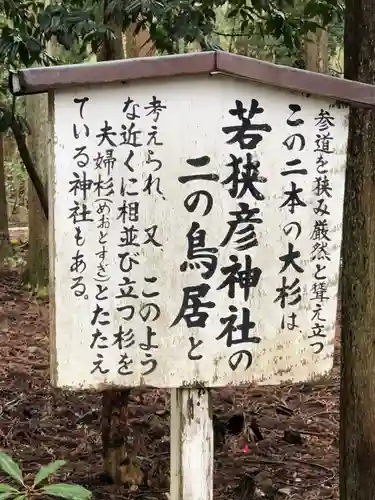 参道を狭み厳然と聳え立つ
この二本の大杉は
若狭彦神社の
二の鳥居と
考えられ、又 このよう
な近くに相並び立つ杉を
夫婦杉(めおとすぎ)とたたえ
ている神社もある。